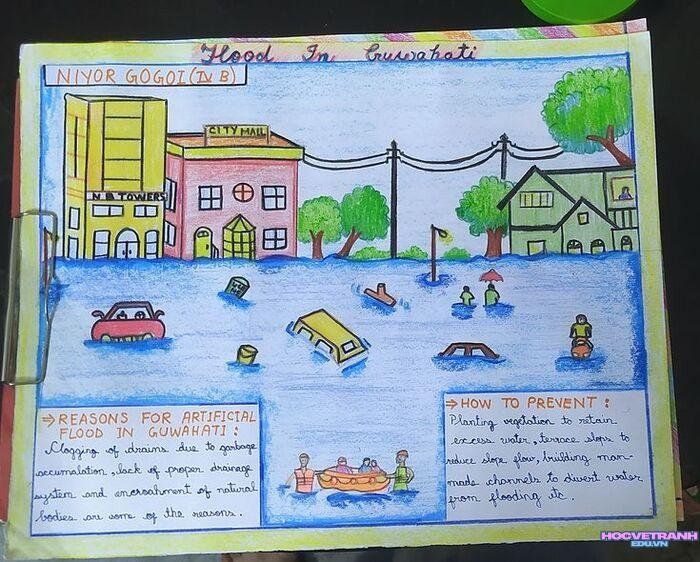 Flood In Guwahati
NIYOR GOGOI (IV B)
CITY MALL
N B TOWERS
⇒ REASONS FOR ARTIFICIAL
FLOOD IN GUWAHATI :
Clogging of drains due to garbage
accumulation, lack of proper drainage
system and encroachment of natural
bodies are some of the reasons.
⇒ HOW TO PREVENT :
Planting vegetation to retain
excess water, terrace slops to
reduce slope flow, building man-
made channels to divert water
from flooding etc.
HOCVETRANH
EDU.VN